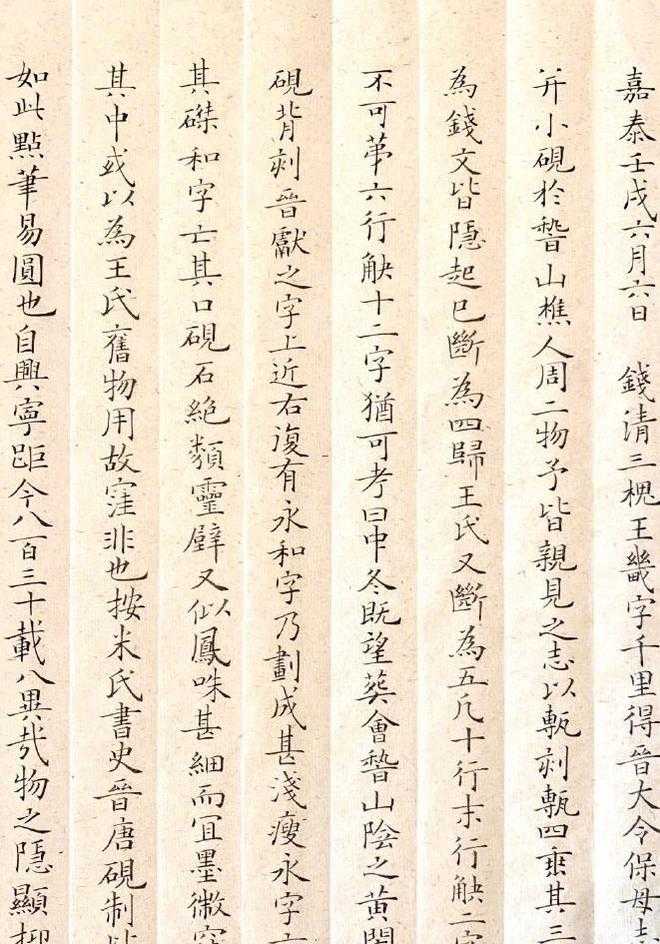 嘉泰壬戌六月六日 錢清三槐王畿字千里得晉大令保母
并小硯於嵆山樵人周二物予皆親見之志以甎刻甎四垂其三
為錢文皆隱起已斷為四歸王氏又斷為五凡十行末行觖二字
不可苐六行觖十二字猶可考曰中冬既望葬會嵆山陰之黃閍
硯背刻晉獻之字上近右復有永和字乃劃成甚淺瘦永字亡
其磔和字亡其口硯石絶類靈壁又似鳳咮甚細而宜墨微窪
其中或以為王氏舊物用故窪非也按米氏書史晉唐硯制皆
如此點筆易圓也自興寧距今八百三十載八異㢤物之隱顯抑